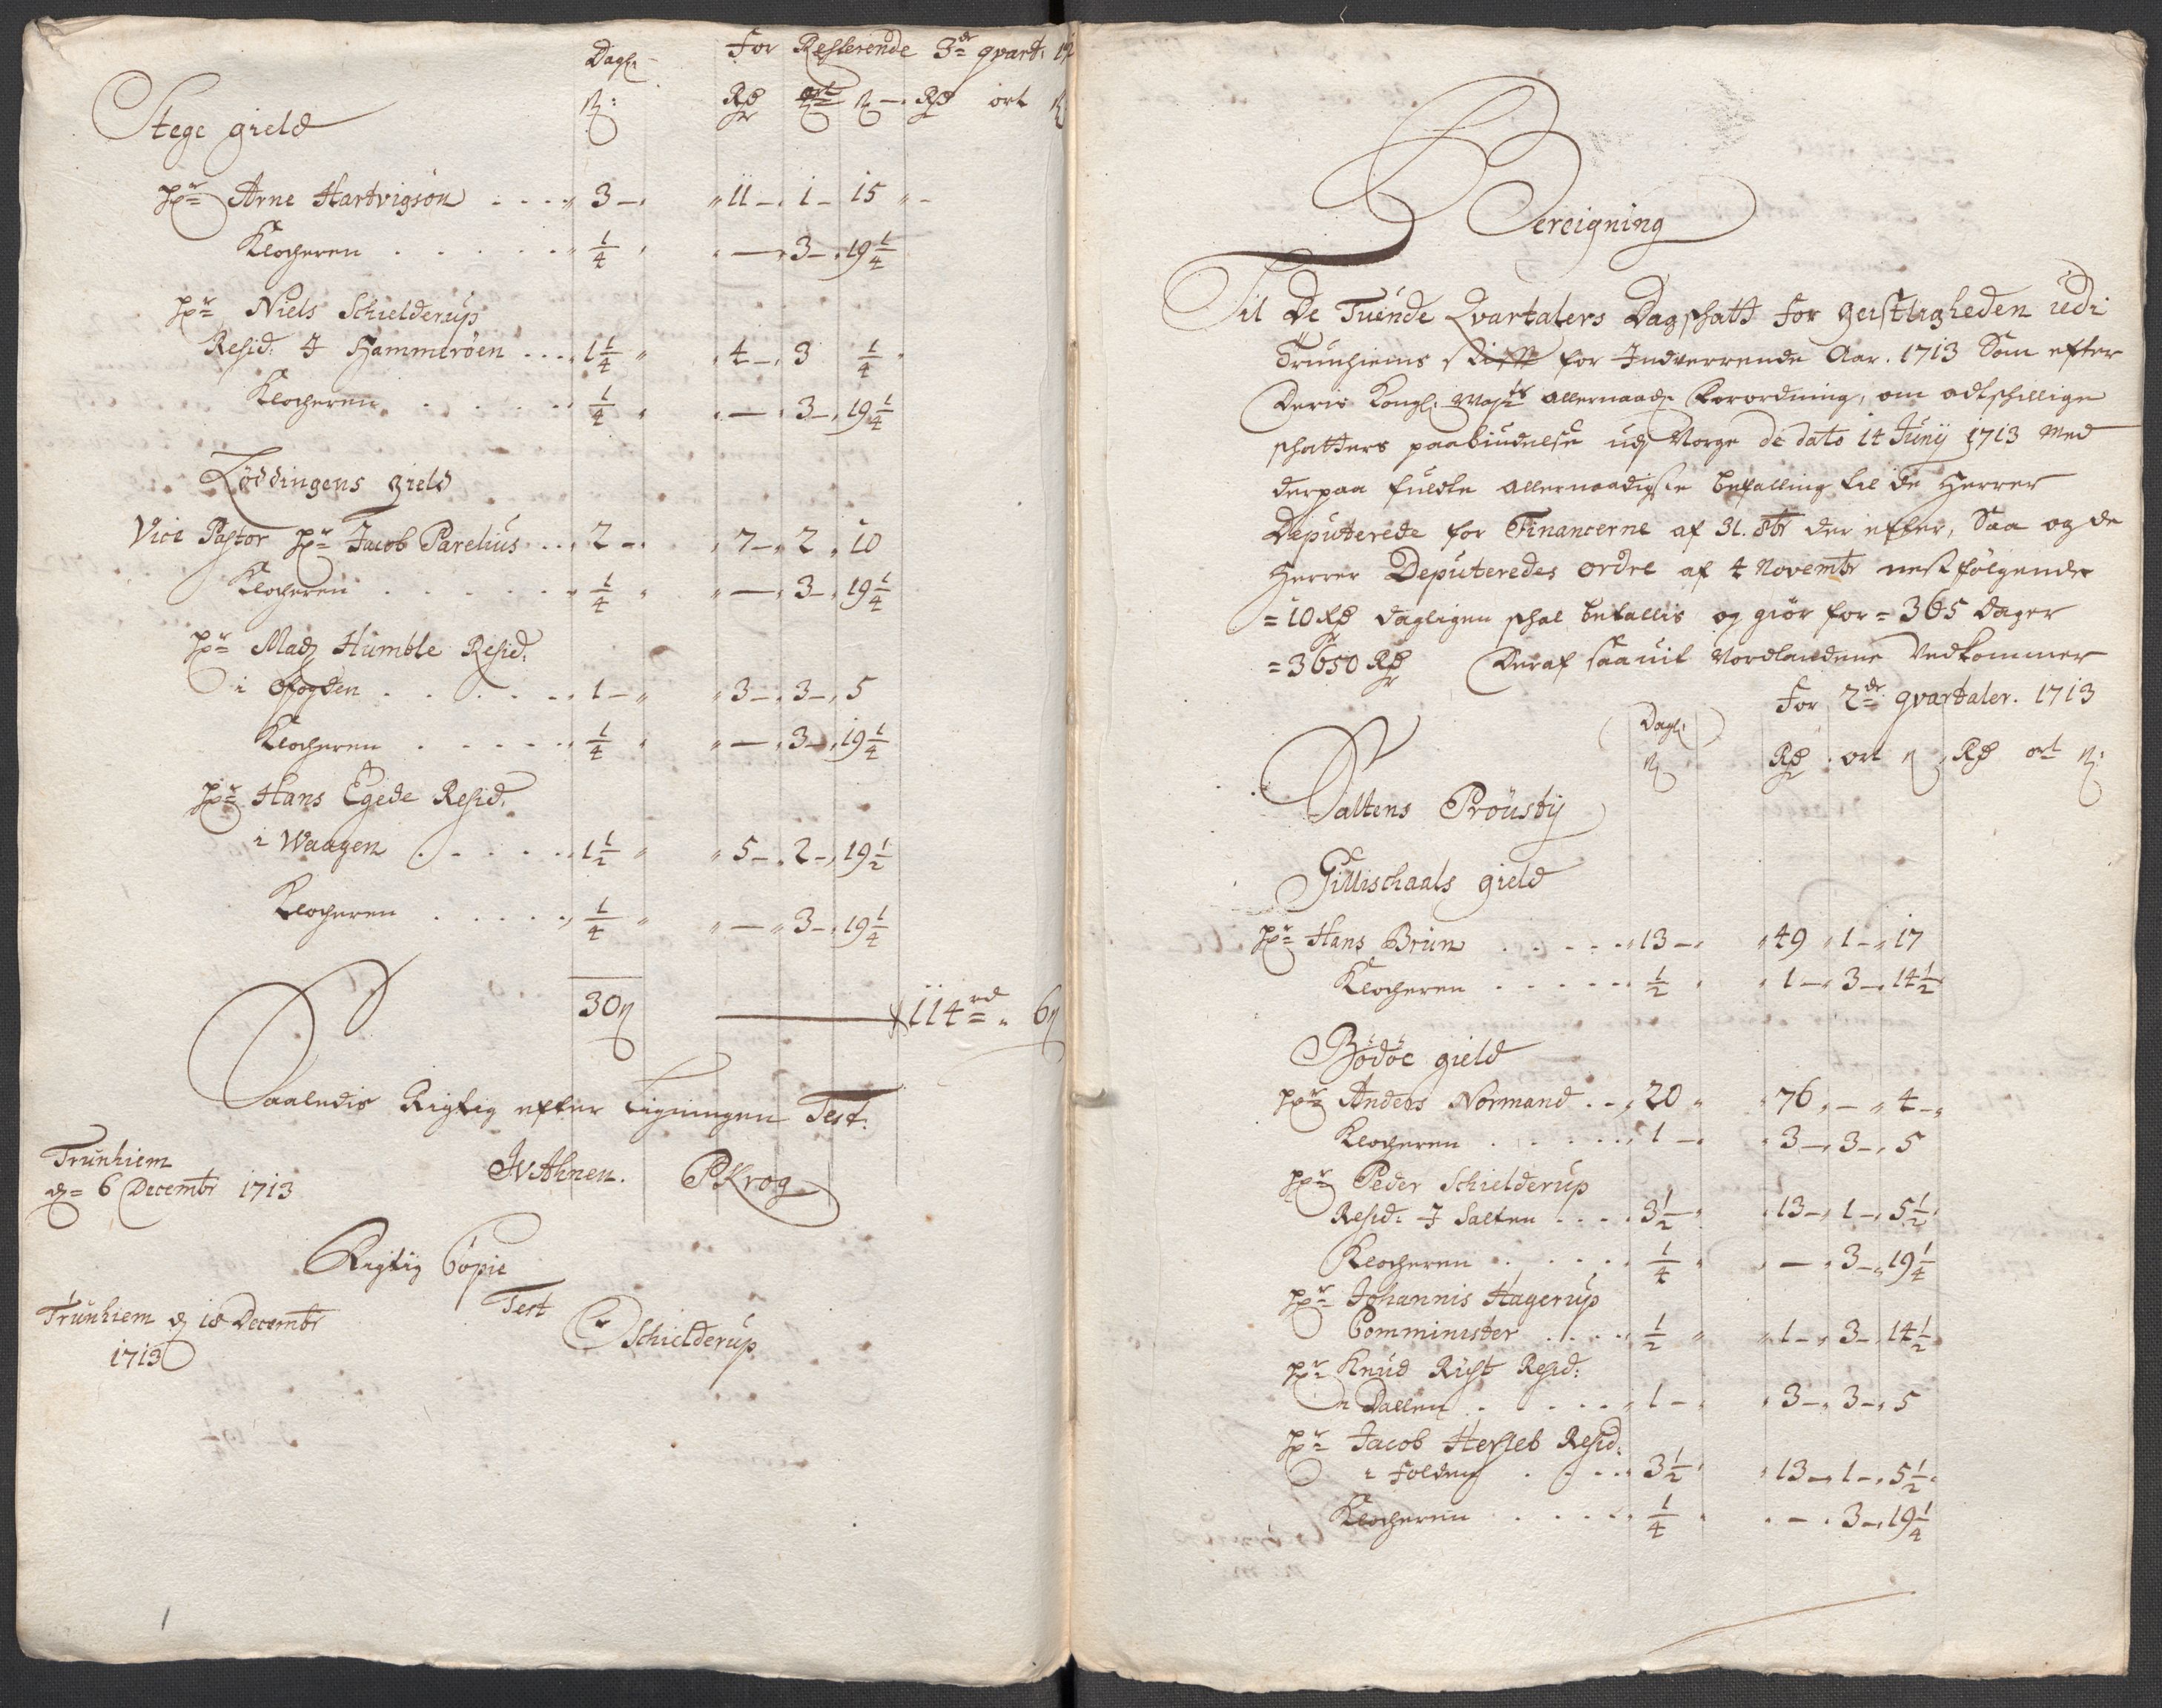 Dagl: For Resterende 3de qvart:
ß: Rd ort ß Rd ort ß
Stege gield
Hr Arne Hartvigsøn . . . 3 — 11 — 1 — 15
Klocheren . . . . . 1/4 — 3 — 19 1/4
Hr Niels Schielderup
Resid: I Hammerøen . . . 1 1/4 4 — 3 1/4
Klocheren . . . . . 1/4 — 3 — 19 1/4
Løddingens gield
Vice Pastor Hr Jacob Parelius . . 2 — 7 — 2 10
Klocheren . . . . . 1/4 — 3 — 19 1/4
Hr Madz Humble Resid:
i Ofogden . . . . . 1 — 3 — 3 — 5
Klocheren . . . . . 1/4 — 3 — 19 1/4
Hr Hans Egede Resid:
i Waagen . . . . . 1 1/2 5 — 2 — 19 1/2
Klocheren . . . . . 1/4 — 3 — 19 1/4
30 ß — 114 rd " 6 ß
Saaledis Rigtig efter Ligningen Test:
Trunhiem
d= 6 Decembr 1713 JVAhnen. PKrog
Rigtig Copie
Trunhiem d 18 Decembr Test
1713 Schielderup
Bereigning
Til De Tuende Qvartalers Dagschatt for geistligheden udi
Trunhiems Stifft for Indverrende Aar. 1713 Som efter
Deris Kongl: Mayts allernaadgs Forordning, om adtschillige
schatters paabiudelse udj Norge de dato 14 Junij 1713 med
derpaa fuldte allernaadigste befalling til de Herrer
Deputerede for Financerne af 31. 8br der efter, Saa og de
Herrer Deputeredes ordre af 4 Novembr nestfølgende
= 10 Rd dagligen schal betallis og giør for = 365 Dager
= 3650 Rd Deraf saauit Nordlandene Vedkommer
For 2de qvartaler. 1713
Dagl:
ß Rd ort ß Rd ort ß:
Saltens Proustij
Gillischaals gield
Hr Hans Brun . . . . . 13 — 49 1 — 17
Klocheren . . . . . 1/2 1 — 3 — 14 1/2
Bodöe gield
Hr Anders Normand . . 20 76 — 4 —
Klocheren . . . . . 1 — 3 — 3 — 5
Hr Peder Schielderup
Resid: I Salten . . . . 3 1/2 13 — 1 — 5 1/2
Klocheren . . . . . 1/4 — 3 — 19 1/4
Hr Johannis Hagerup
Comminister . . . . 1/2 1 — 3 — 14 1/2
Hr Knud Rist Resid:
i Dallen . . . . . 1 — 3 — 3 — 5
Hr Jacob Hersleb Resid:
i Folden . . . . 3 1/2 13 — 1 — 5 1/2
Klocheren . . . . . 1/4 — 3 — 19 1/4